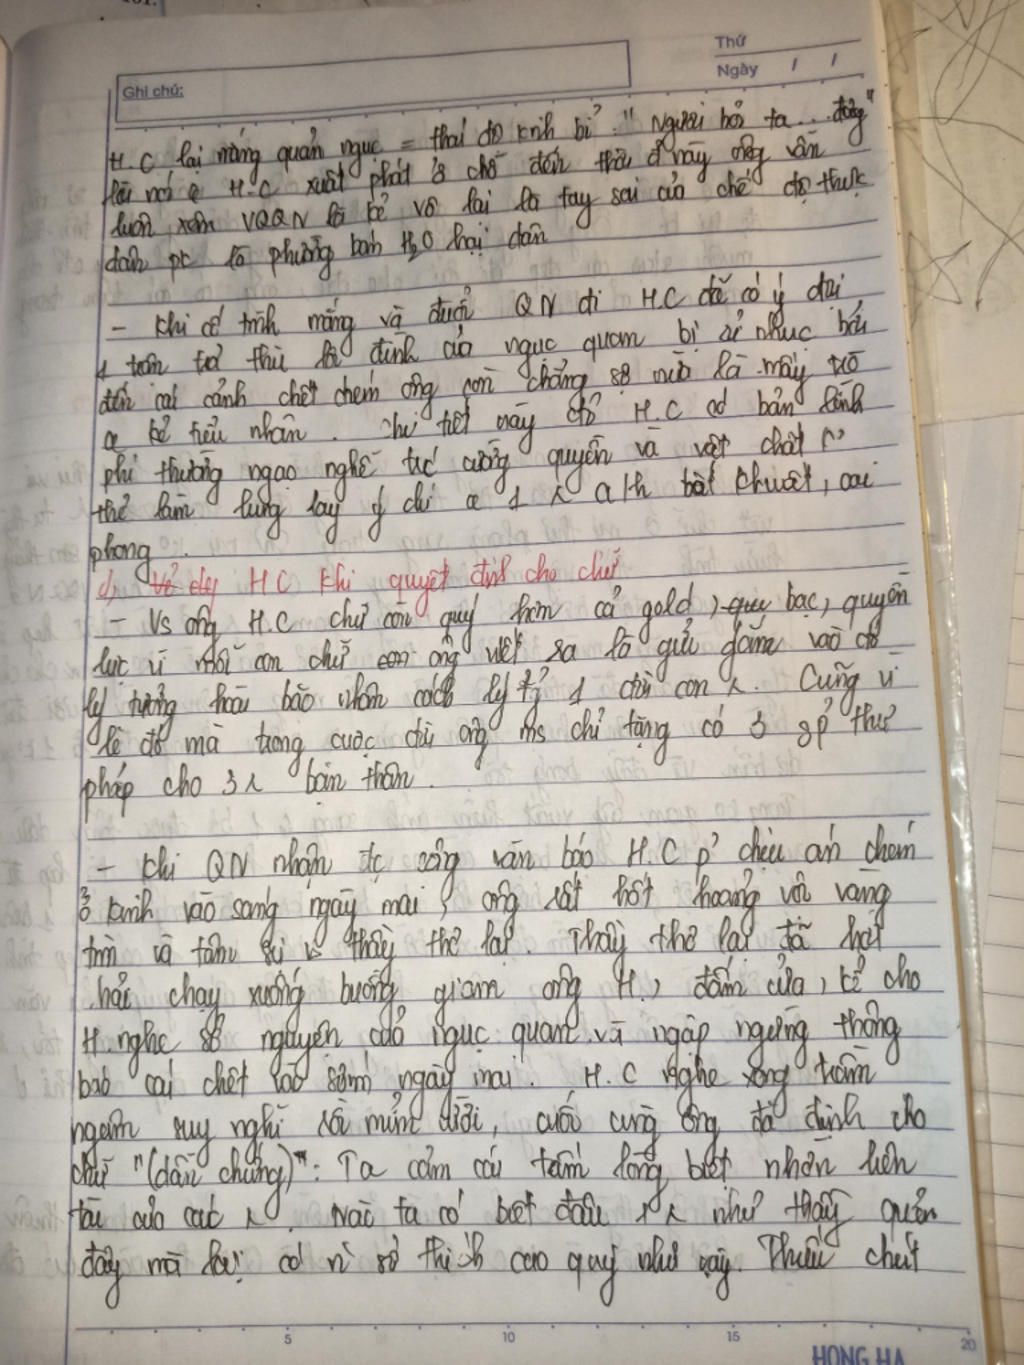 Thứ
Ngày / /
Ghi chú:
H.C lại mắng quản ngục = thái độ khinh bỉ "Người hỏi ta... đây"
H.C xuất phát ở chỗ đến thời đ này ông vẫn
luôn xem VQQN là kẻ vô lại là tay sai của chế độ thực
dân pk là phường bán H₂O hại dân
- Khi cố tình mắng và đuổi QN đi H.C đã có ý đợi
1 trận trả thù là đình của ngục quan bị sỉ nhục bởi
đến cái cảnh chết chém ông còn chẳng sợ nữa là mấy trò
kẻ tiểu nhân. Chi tiết này đã H.C có bản lĩnh
phi thường ngạo nghễ trc cường quyền và vật chất
thể làm lung lay ý chí 1 a/h bất khuất, oai
phong.
d, Vẻ đẹp HC khi quyết định cho chữ
- Vs ông H.C chữ còn quý hơn cả gold, quy bạc, quyền
lực vì mỗi con chữ con ông viết ra là gửi gắm vào đó
lý tưởng hoài bão nhân cách lý 1 đời con. Cũng vì
lẽ đó mà trong cuộc đời ông ms chỉ tặng có 3 sp' thư
pháp cho 3 bạn thân.
- Khi QN nhận đc công văn báo H.C p' chịu án chém
ở kinh vào sáng ngày mai, ông rất hốt hoảng vội vàng
tìm và tâm sự vs thầy thơ lại. Thầy thơ lại đã hớt
hải chạy xuống buồng giam ông H., đấm cửa, kể cho
H. nghe sở nguyện của ngục quan và ngập ngừng thông
báo cái chết vào sớm ngày mai. H.C nghe xong trầm
ngâm suy nghĩ rồi mỉm cười, cuối cùng ông đã định cho
chữ "(dẫn chứng)": Ta cảm cái tấm lòng biệt nhỡn liên
tài của các. Nào ta có biết đâu 1 như thầy quản
đây mà lại có n~ sở thích cao quý như vậy. Thiếu chút
5 10 15 20
HONG HA